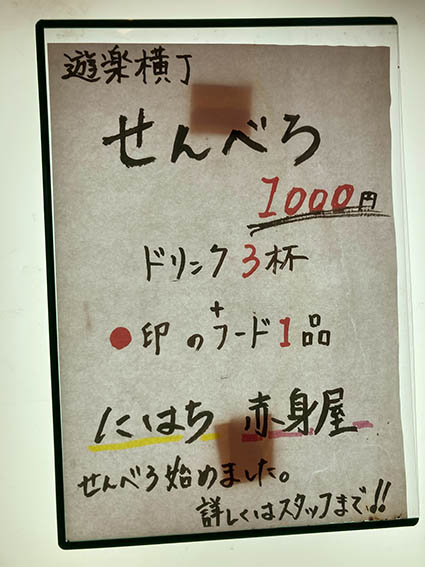 遊楽横丁
せんべろ
1000円
ドリンク3杯
+
●印のフード1品
にはち 赤身屋
せんべろ始めました。
詳しくはスタッフまで!!